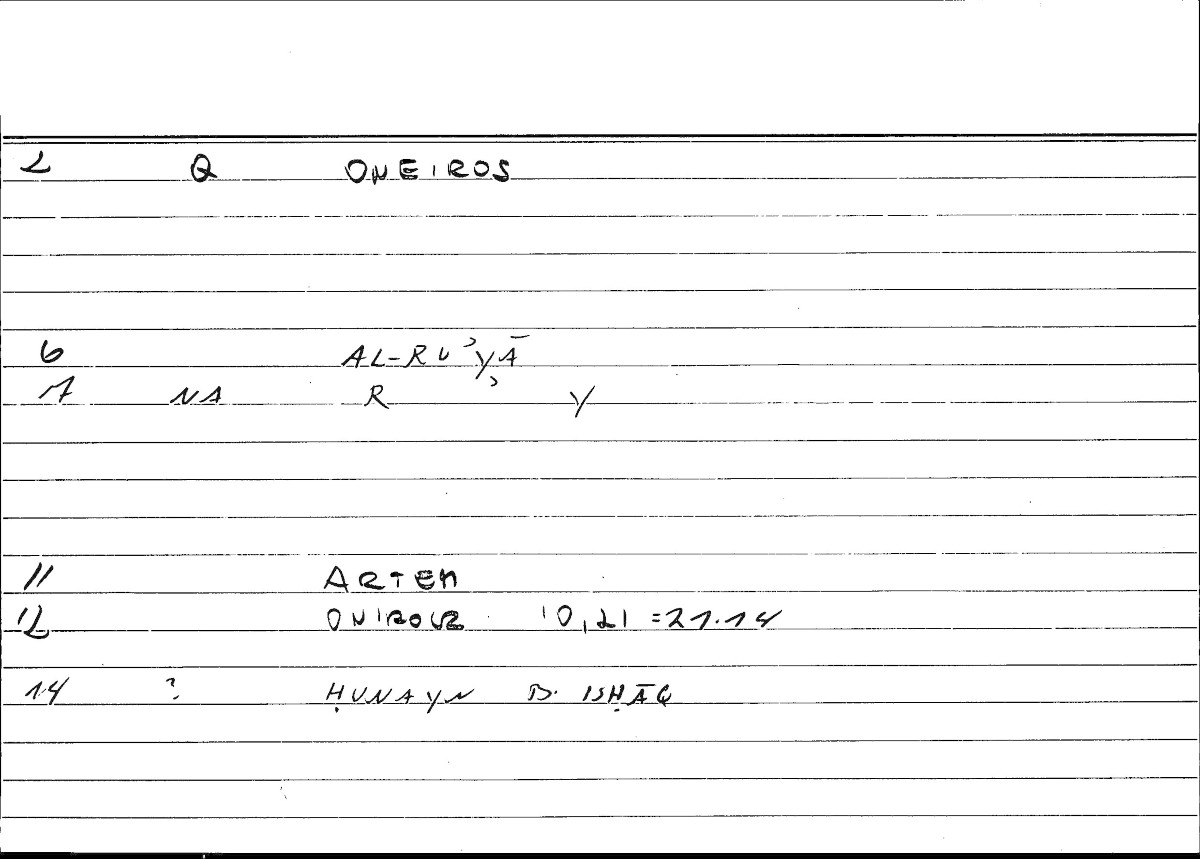 2 Q ONEIROS
6 AL-RUʾYĀ
7 NA R ʾ Y
11 ARTEM
12 ONIROCR 10,21 =21.14
14 ? ḤUNAYN B. ISḤĀQ